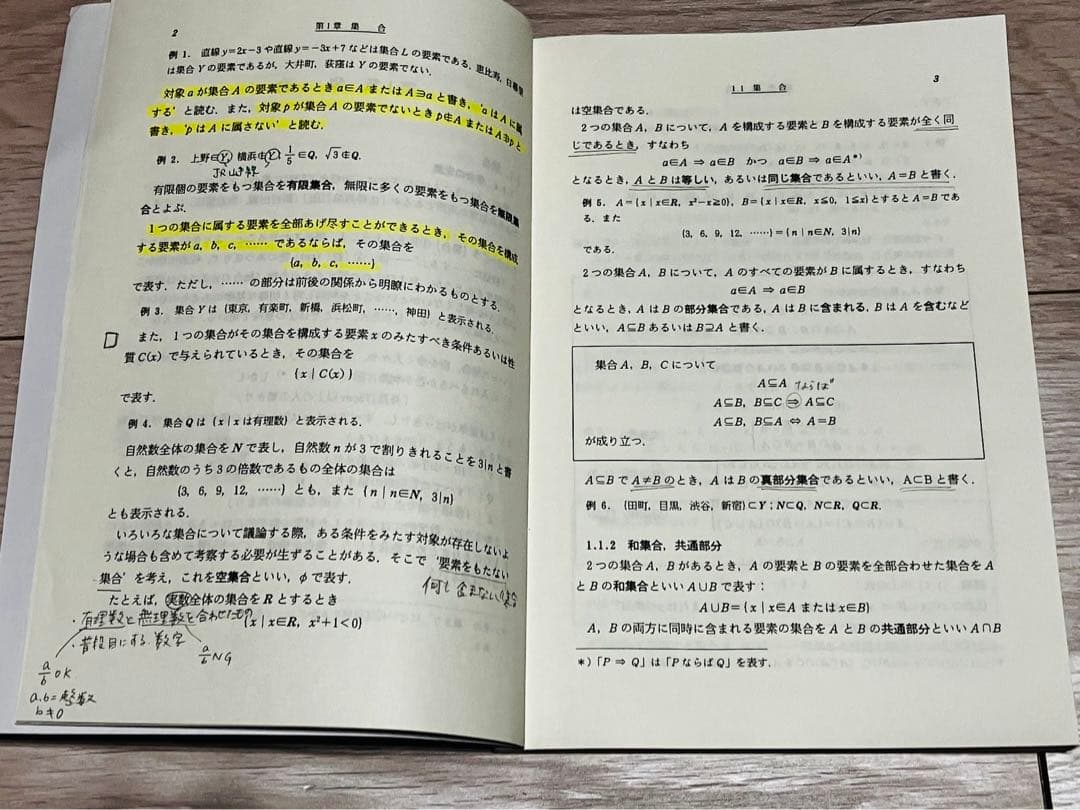 2
第1章 集 合
例 1. 直線 y=2x−3 や直線 y=−3x+7 などは集合 L の要素である. 恵比寿, 目黒
は集合 Y の要素であるが, 大井町, 荻窪は Y の要素でない.
対象 a が集合 A の要素であるとき a∈A または A∋a と書き, 'a は A に属
する' と読む. また, 対象 p が集合 A の要素でないとき p∉A または A∌p と
書き, 'p は A に属さない' と読む.
例 2. 上野∈Y, 横浜∉Y, 1/5∈Q, √3∉Q.
JR山手線
有限個の要素をもつ集合を有限集合, 無限に多くの要素をもつ集合を無限集
合とよぶ.
1つの集合に属する要素を全部あげ尽すことができるとき, その集合を構成
する要素が a, b, c, …… であるならば, その集合を
{a, b, c, ……}
で表す. ただし, …… の部分は前後の関係から明瞭にわかるものとする.
例 3. 集合 Y は {東京, 有楽町, 新橋, 浜松町, ……, 神田} と表示される.
また, 1つの集合がその集合を構成する要素 x のみたすべき条件あるいは性
質 C(x) で与えられているとき, その集合を
{x | C(x)}
で表す.
例 4. 集合 Q は {x | x は有理数} と表示される.
自然数全体の集合を N で表し, 自然数 n が 3 で割りきれることを 3|n と書
くと, 自然数のうち 3 の倍数であるもの全体の集合は
{3, 6, 9, 12, ……} とも, また {n | n∈N, 3|n}
とも表示される.
いろいろな集合について議論する際, ある条件をみたす対象が存在しないよ
うな場合も含めて考察する必要が生ずることがある. そこで '要素をもたない
集合' を考え, これを空集合といい, φ で表す.
何も含まない集合
たとえば, 実数全体の集合を R とするとき
{x | x∈R, x²+1<0}
・有理数と無理数を合わせたもの
・普段目にする数字
a/b OK
a/b NG
a, b = 整数
b≠0
1.1 集 合
3
は空集合である.
2つの集合 A, B について, A を構成する要素と B を構成する要素が全く同
じであるとき, すなわち
a∈A ⇒ a∈B かつ a∈B ⇒ a∈A*)
となるとき, A と B は等しい, あるいは同じ集合であるといい, A=B と書く.
例 5. A={x | x∈R, x²−x≧0}, B={x | x∈R, x≦0, 1≦x} とすると A=B であ
る. また
{3, 6, 9, 12, ……}={n | n∈N, 3|n}
である.
2つの集合 A, B について, A のすべての要素が B に属するとき, すなわち
a∈A ⇒ a∈B
となるとき, A は B の部分集合である, A は B に含まれる, B は A を含むなど
といい, A⊆B あるいは B⊇A と書く.
集合 A, B, C について
A⊆A
ならば"
A⊆B, B⊆C ⇒ A⊆C
A⊆B, B⊆A ⇔ A=B
が成り立つ.
A⊆B で A≠B のとき, A は B の真部分集合であるといい, A⊂B と書く.
例 6. {田町, 目黒, 渋谷, 新宿}⊂Y; N⊂Q, N⊂R, Q⊂R.
1.1.2 和集合, 共通部分
2つの集合 A, B があるとき, A の要素と B の要素を全部合わせた集合を A
と B の和集合といい A∪B で表す:
A∪B={x | x∈A または x∈B}
A, B の両方に同時に含まれる要素の集合を A と B の共通部分といい A∩B
*)「P ⇒ Q」は「P ならば Q」を表す.